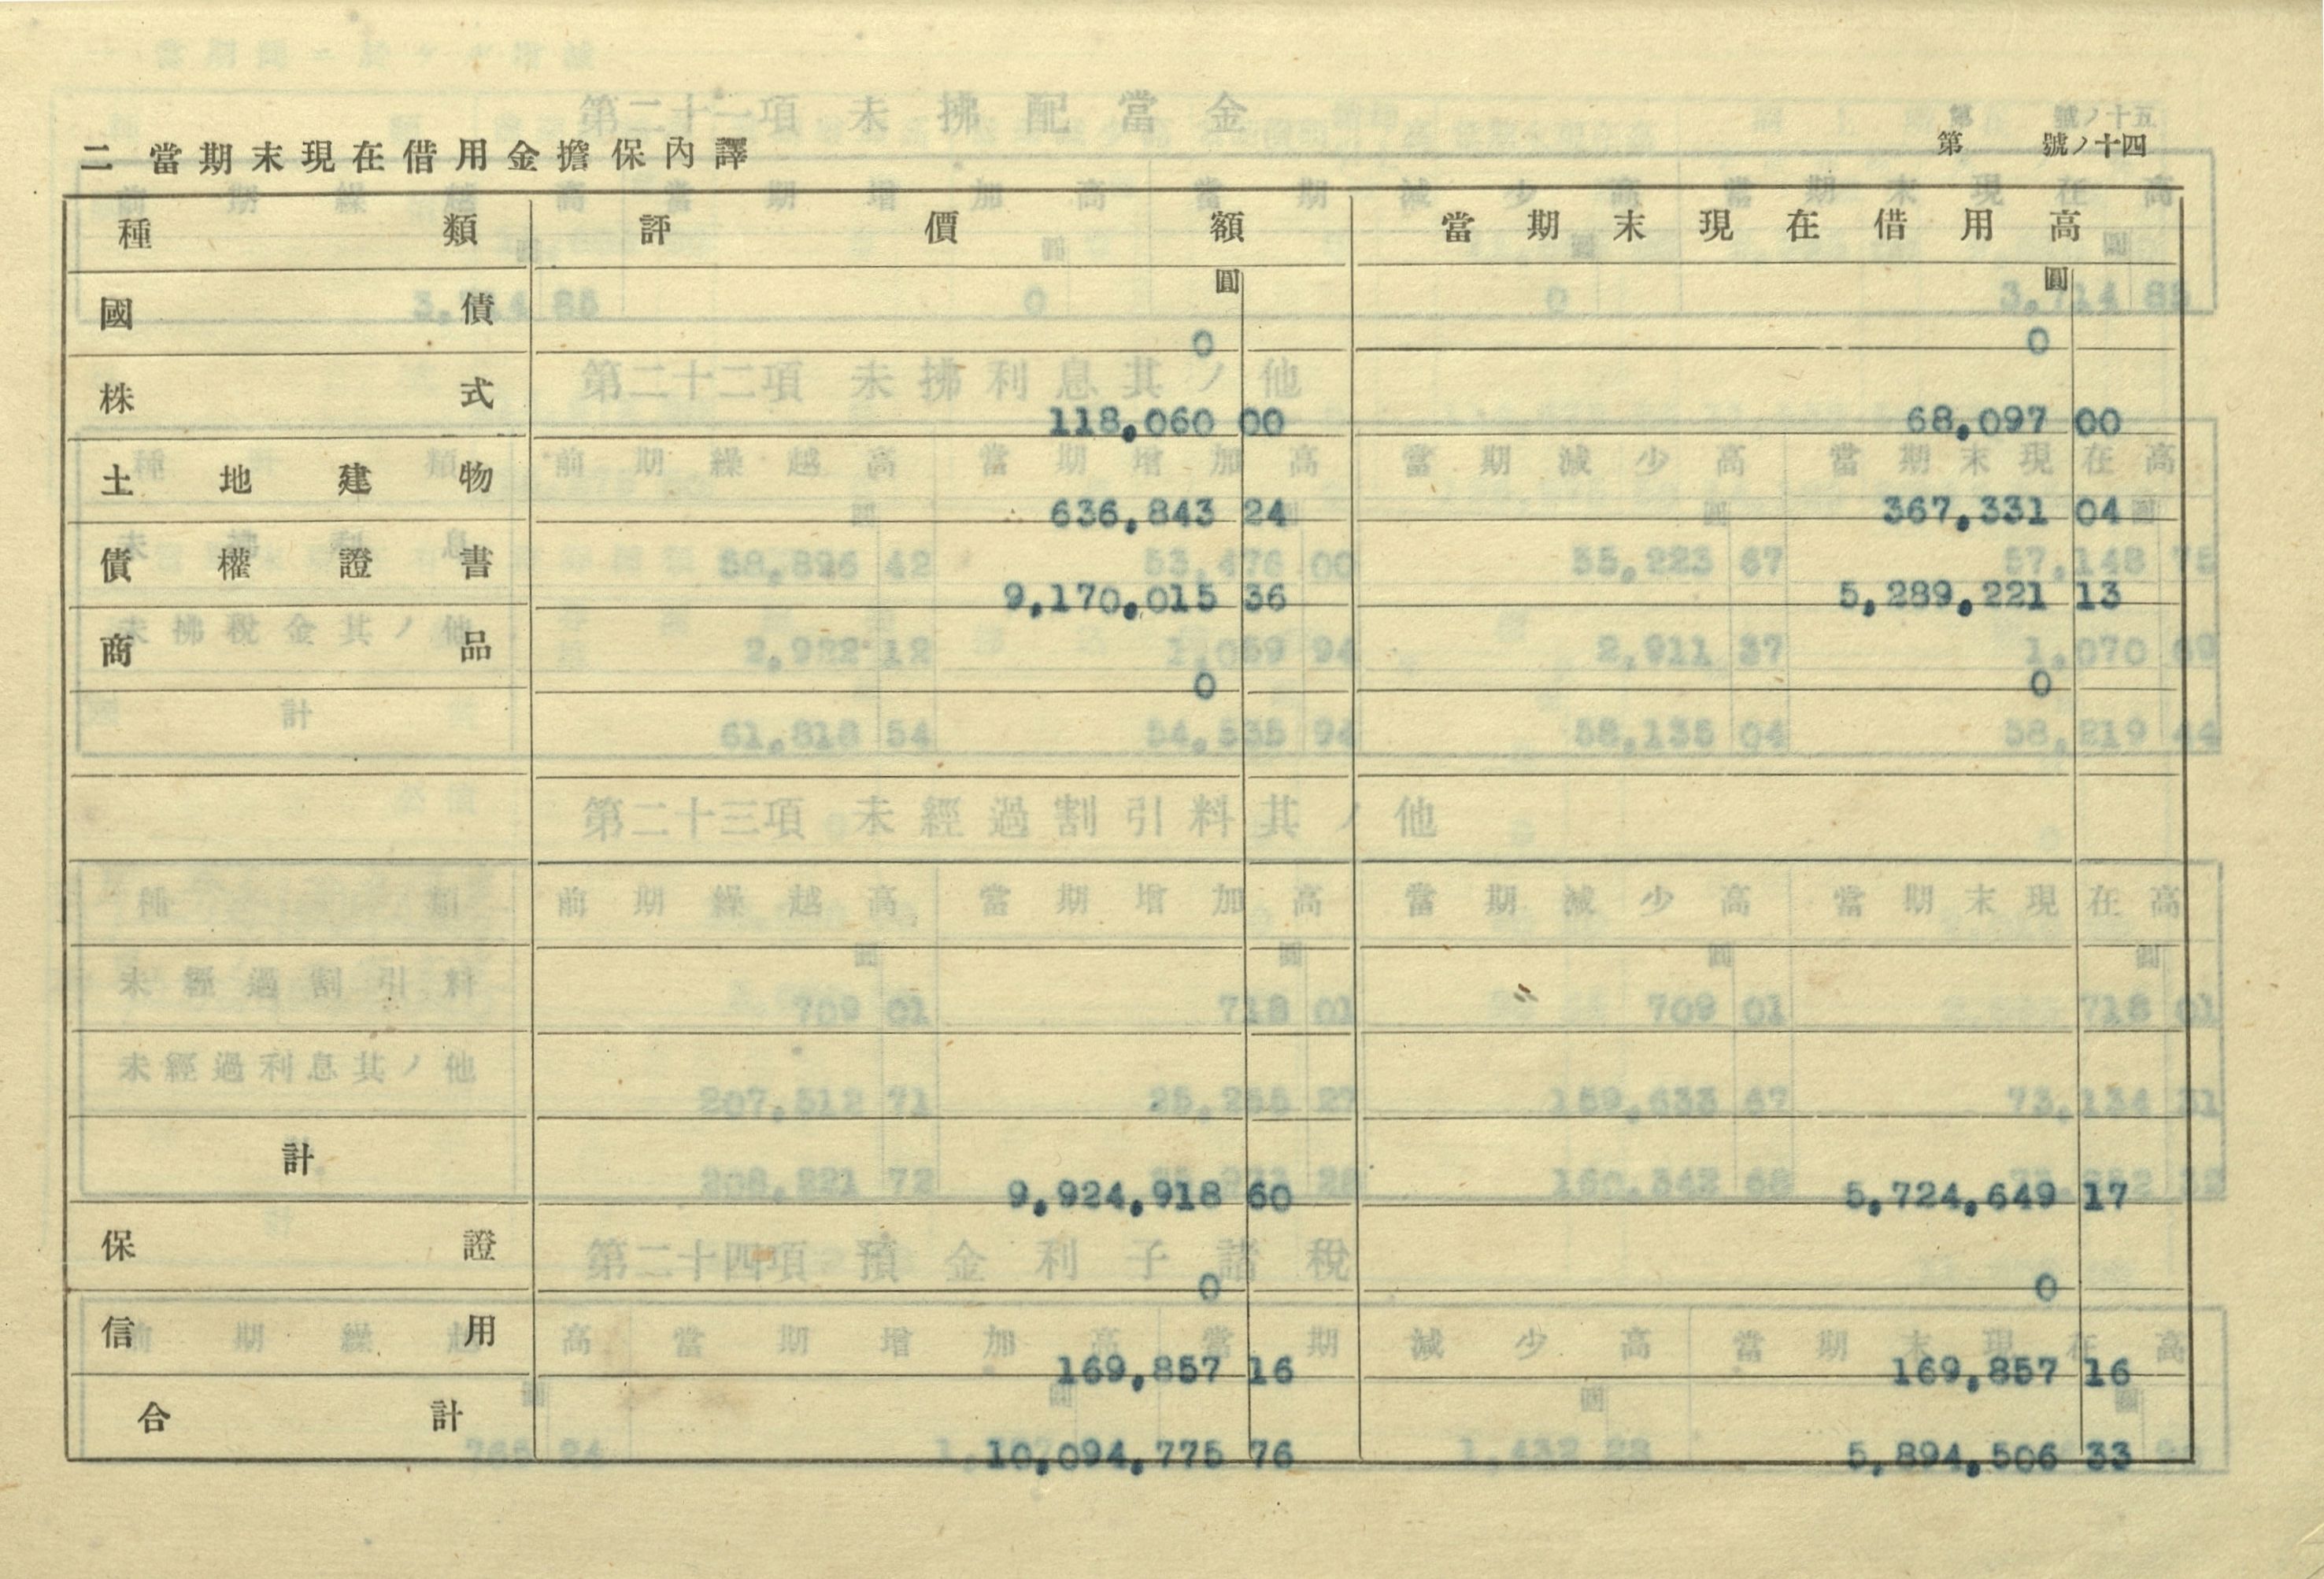 第　號ノ十四
二 當期末現在借用金擔保內譯
種類 評價額 當期末現在借用高
圓 圓
國債 0 0
株式 118,060 00 68,097 00
土地建物 636,843 24 367,331 04
債權證書 9,170,015 36 5,289,221 13
商品 0 0
計 9,924,918 60 5,724,649 17
保證 0 0
信用 169,857 16 169,857 16
合計 10,094,775 76 5,894,506 33